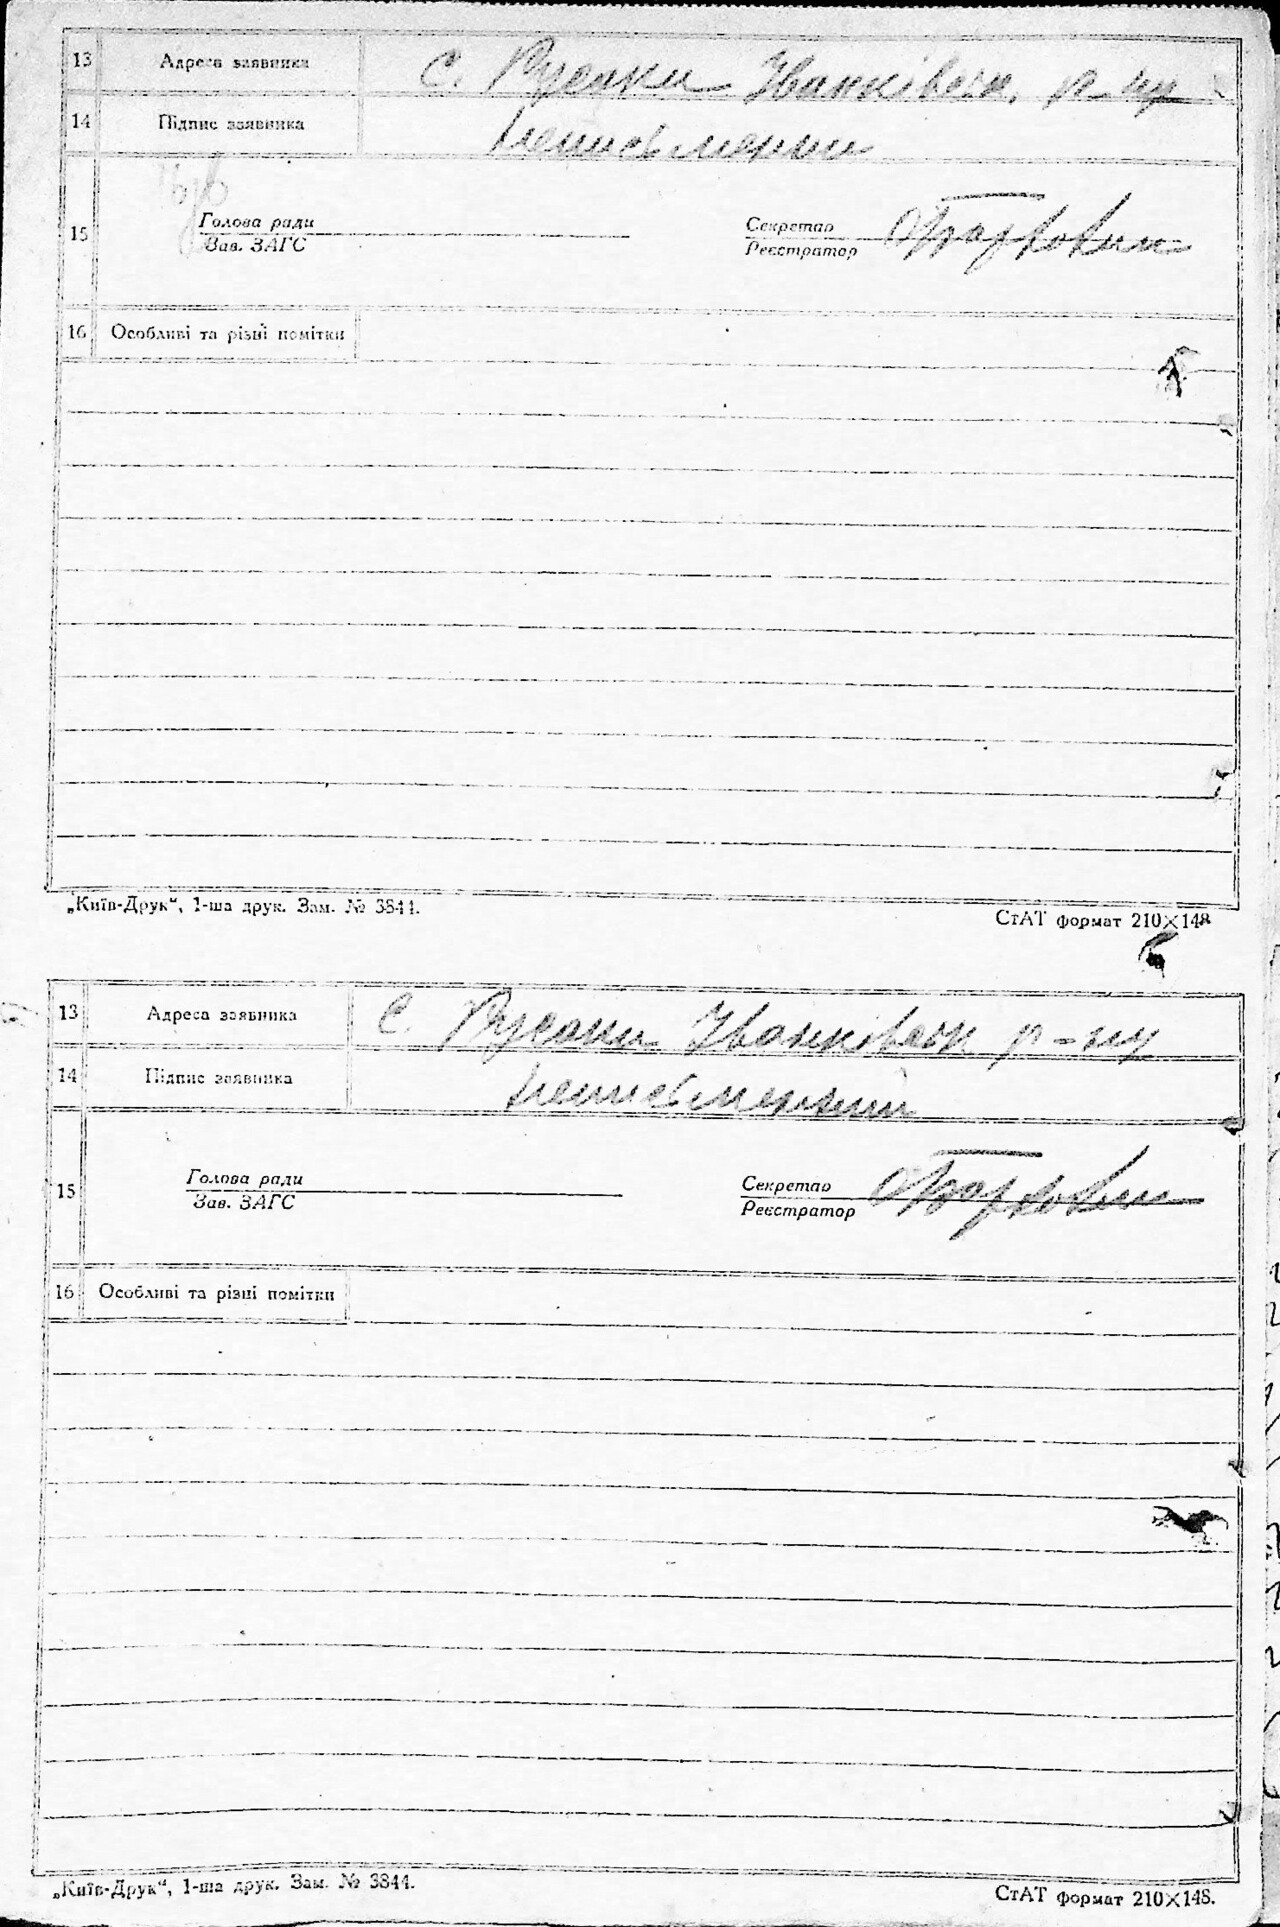 13 Адреса заявника с. Русаки Іванківськ. р-ну
14 Підпис заявника неписьмений
Голова ради Секретар
15
Зав. ЗАГС Реєстратор
16 Особливі та різні помітки
„Київ-Друк“, 1-ша друк. Зам. № 3844. СтАТ формат 210×148
13 Адреса заявника с. Русаки Іванківськ р-ну
14 Підпис заявника неписьменний
Голова ради Секретар
15
Зав. ЗАГС Реєстратор
16 Особливі та різні помітки
„Київ-Друк“, 1-ша друк. Зам. № 3844. СтАТ формат 210×148.